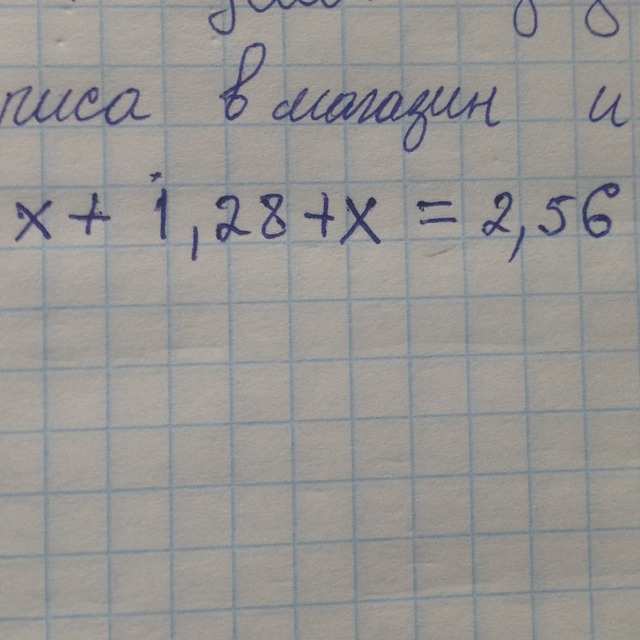 в магазин и
x + 1,28 + x = 2,56